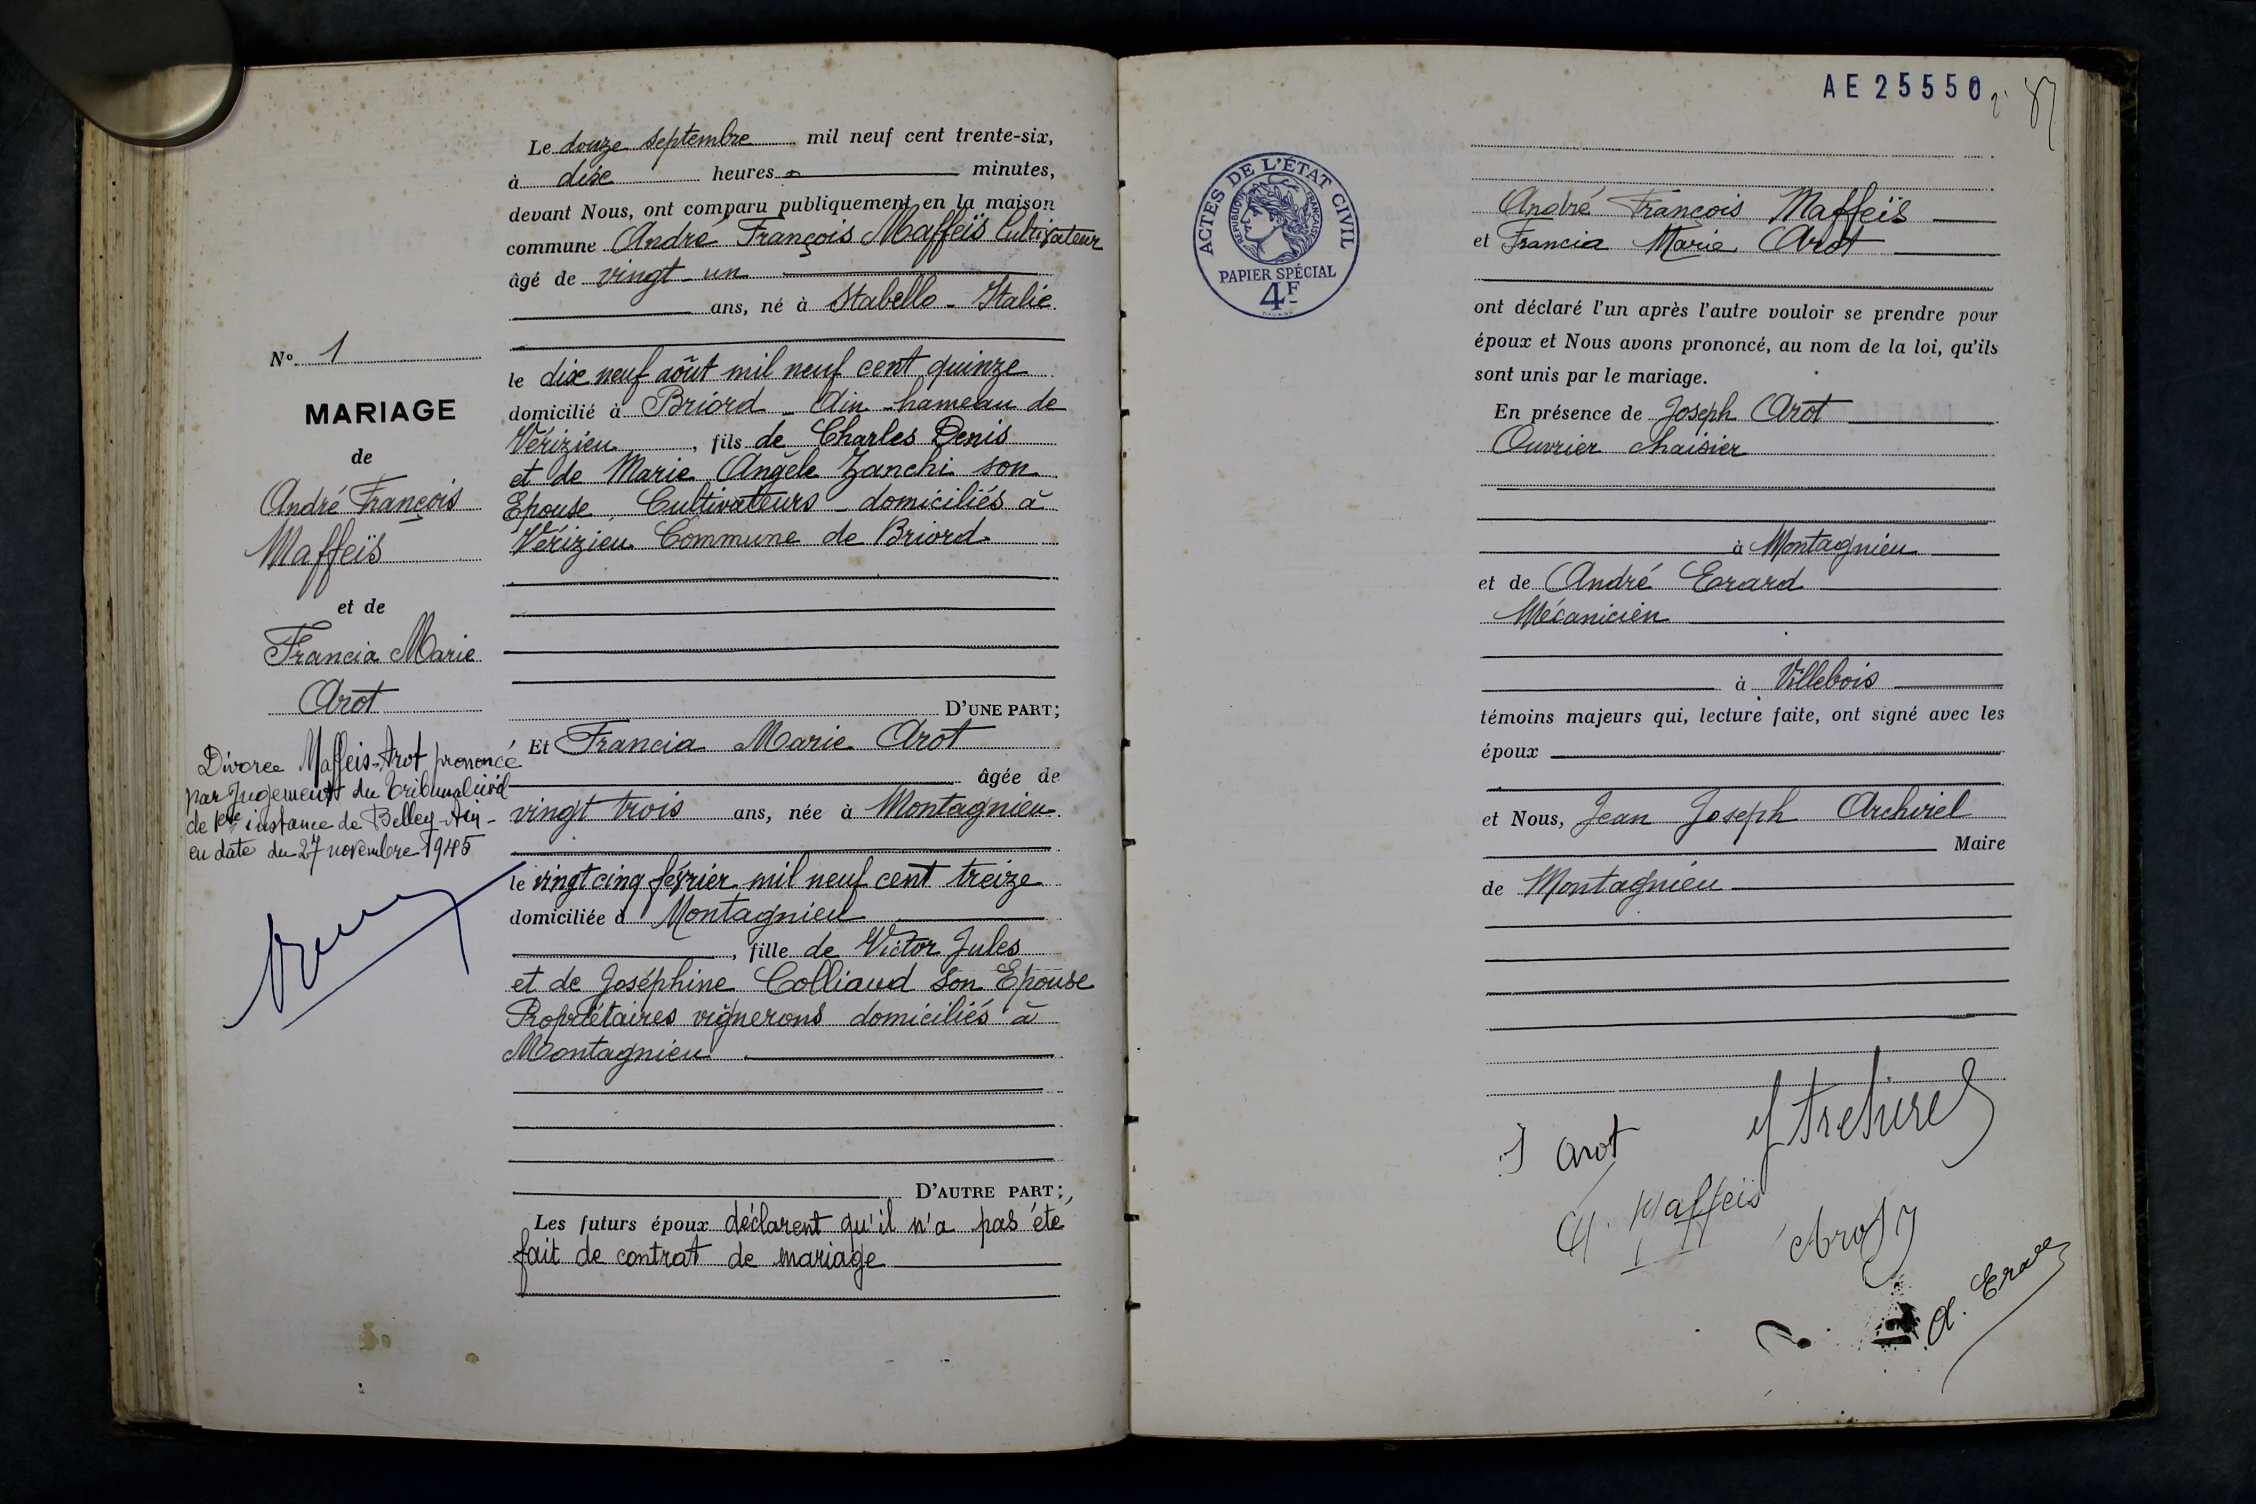 Le douze septembre mil neuf cent trente-six,
à dix heures minutes,
devant Nous, ont comparu publiquement en la maison
commune André François Maffeïs Cultivateur
âgé de vingt-un
ans, né à Stabello - Italie
le dix neuf août mil neuf cent quinze
domicilié à Briord - Ain - hameau de
Vérizieu, fils de Charles Denis
et de Marie Angèle Zanchi son
Epouse Cultivateurs - domiciliés à
Vérizieu Commune de Briord.
D'UNE PART;
Et Francia Marie Arot
âgée de
vingt trois ans, née à Montagnieu
le vingt cinq février mil neuf cent treize
domiciliée à Montagnieu
, fille de Victor Jules
et de Joséphine Colliaud son Epouse
Propriétaires vignerons domiciliés à
Montagnieu
D'AUTRE PART;
Les futurs époux déclarent qu'il n'a pas été
fait de contrat de mariage
N° 1
MARIAGE
de
André François
Maffeïs
et de
Francia Marie
Arot
Divorce Maffeis-Arot prononcé
par Jugement du Tribunal civil
de 1ère instance de Belley - Ain -
en date du 27 novembre 1945
AE 25550
87
ACTES DE L'ÉTAT CIVIL
RÉPUBLIQUE FRANÇAISE
PAPIER SPÉCIAL
4F
André François Maffeïs
et Francia Marie Arot
ont déclaré l'un après l'autre vouloir se prendre pour
époux et Nous avons prononcé, au nom de la loi, qu'ils
sont unis par le mariage.
En présence de Joseph Arot
Ouvrier chaisier
à Montagnieu
et de André Erard
Mécanicien
à Villebois
témoins majeurs qui, lecture faite, ont signé avec les
époux
et Nous, Jean Joseph Archirel
Maire
de Montagnieu
J Arot
J Archirel
A. Maffeïs
Arot J
A. Erard